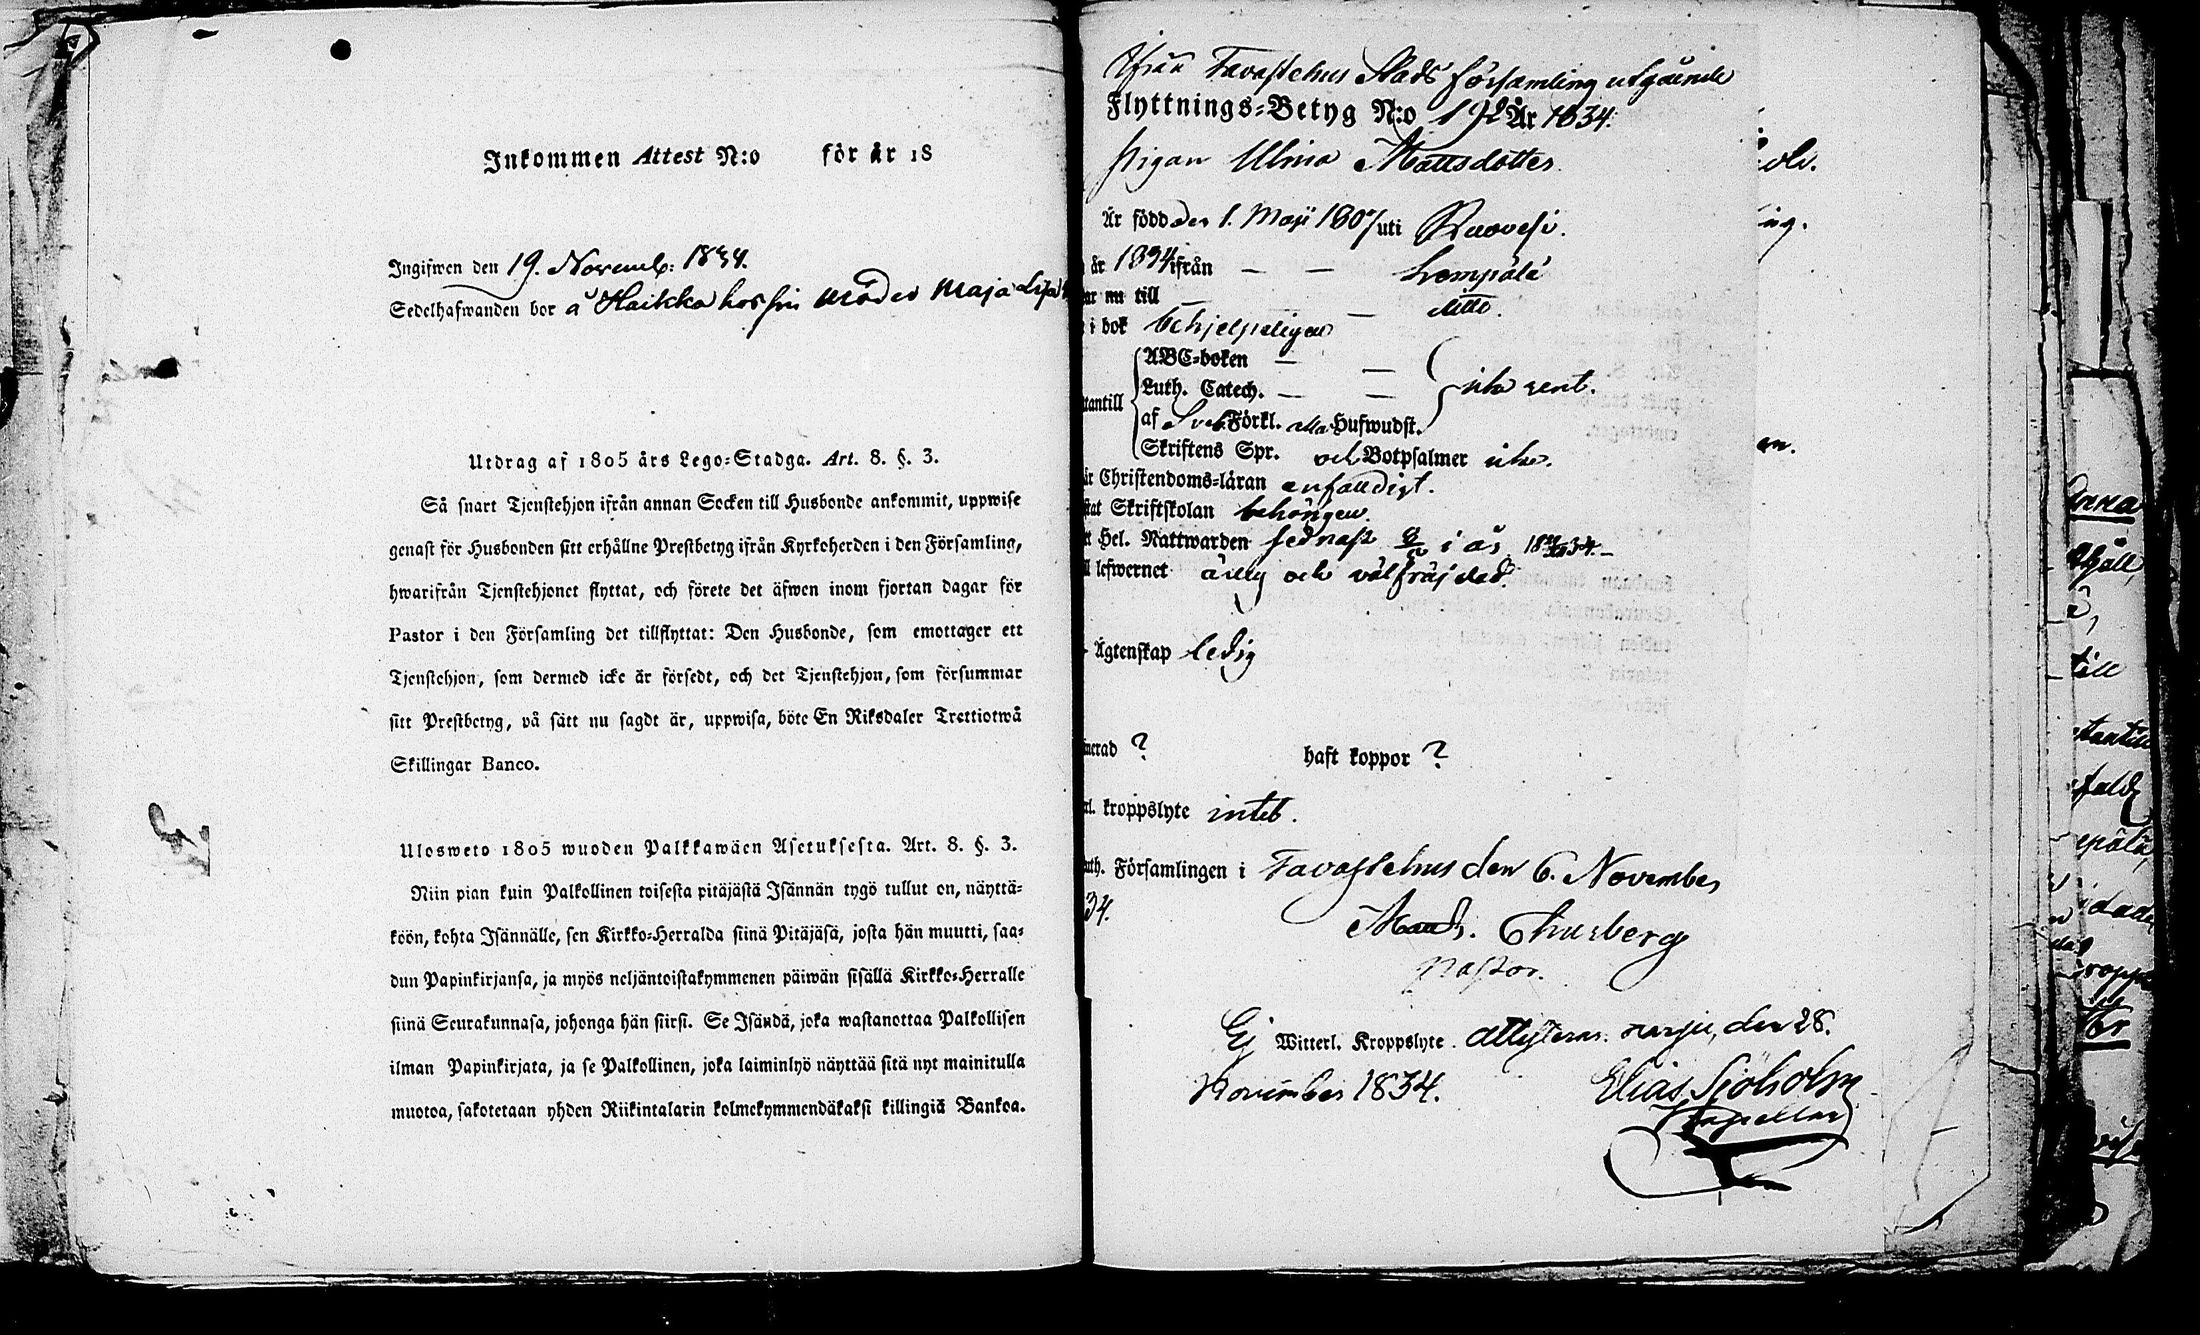 Inkommen Attest N:o för år 18
Ingifwen den 19. Novemb: 1834.
Sedelhafwanden bor å Haikka hos sin Moder Maja Lisa
Utdrag af 1805 års Lego-Stadga. Art. 8. §. 3.
Så snart Tjenstehjon ifrån annan Socken till Husbonde ankommit, uppwise
genast för Husbonden sitt erhållne Prestbetyg ifrån Kyrkoherden i den Församling,
hwarifrån Tjenstehjonet flyttat, och förete det äfwen inom fjortan dagar för
Pastor i den Församling det tillflyttat: Den Husbonde, som emottager ett
Tjenstehjon, som dermed icke är försedt, och det Tjenstehjon, som försummar
sitt Prestbetyg, på sätt nu sagdt är, uppwisa, böte En Riksdaler Trettiotwå
Skillingar Banco.
Ulosweto 1805 wuoden Palkkawäen Asetuksesta. Art. 8. §. 3.
Niin pian kuin Palkollinen toisesta pitäjästä Isännän tygö tullut on, näyttä-
köön, kohta Isännälle, sen Kirkko-Herralda siinä Pitäjäsä, josta hän muutti, saa-
dun Papinkirjansa, ja myös neljäntoistakymmenen päiwän sisällä Kirkko-Herralle
siinä Seurakunnasa, johonga hän siirsi. Se Isändä, joka wastanottaa Palkollisen
ilman Papinkirjata, ja se Palkollinen, joka laiminlyö näyttää sitä nyt mainitulla
muotoa, sakotetaan yhden Riikintalarin kolmekymmendäkaksi killingiä Bankoa.
Ifrån Tavastehus Stads församling utgående
Flyttnings-Betyg N:o 192 År 1834.
Pigan Ulrica Mattsdotter
Är född den 1. Maji 1807 uti Ruovesi.
år 1834 ifrån — — Lempälä
ar nu till — — ditto.
i bok behjelpeligen
ABC-boken — —
Luth. Catech. — — icke rent.
tantill
af Sveb. Förkl. alla Hufwudst.
Skriftens Spr. och Botpsalmer icke.
är Christendoms-läran enfalldigt.
stat Skriftskolan behörigen.
tt Hel. Nattwarden sednast i år
ll lefwernet ärlig och välfräjdad.
Ägtenskap ledig
nerad ? haft koppor ?
rl. kroppslyte intet.
uth. Församlingen i Tavastehus den 6. November
34.
Thurberg
Pastor.
Ej Witterl. Kroppslyte. den 28.
November 1834. Elias Sjöholm
Kapellan